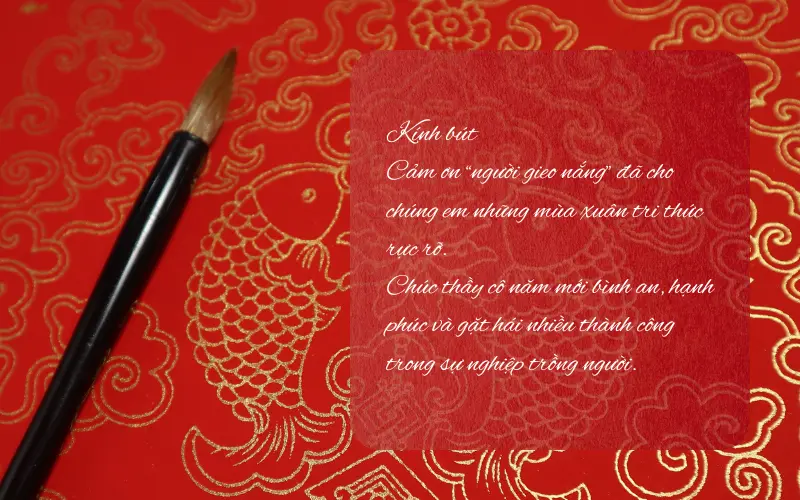 Kính bút
Cảm ơn “người gieo nắng” đã cho
chúng em những mùa xuân tri thức
rực rỡ.
Chúc thầy cô năm mới bình an, hạnh
phúc và gặt hái nhiều thành công
trong sự nghiệp trồng người.